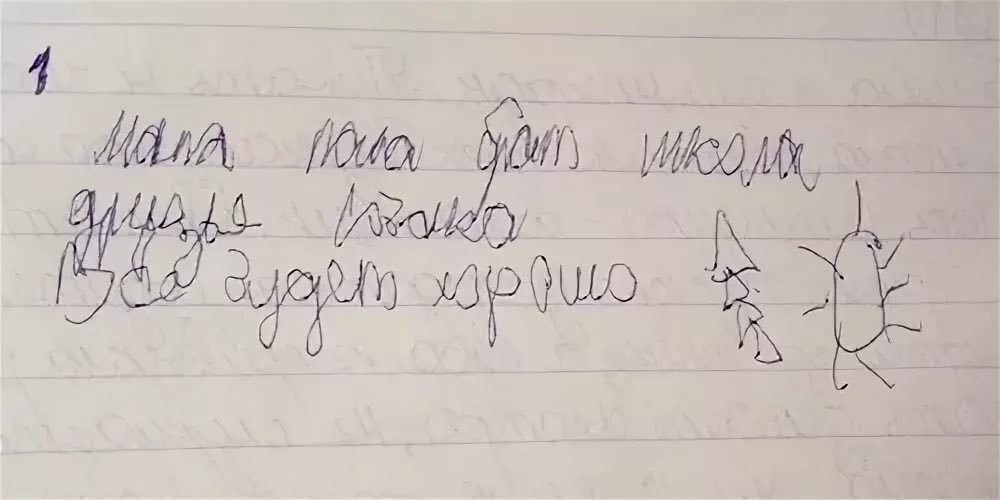 1
мама папа брат школа
друзья собака
Все будет хорошо